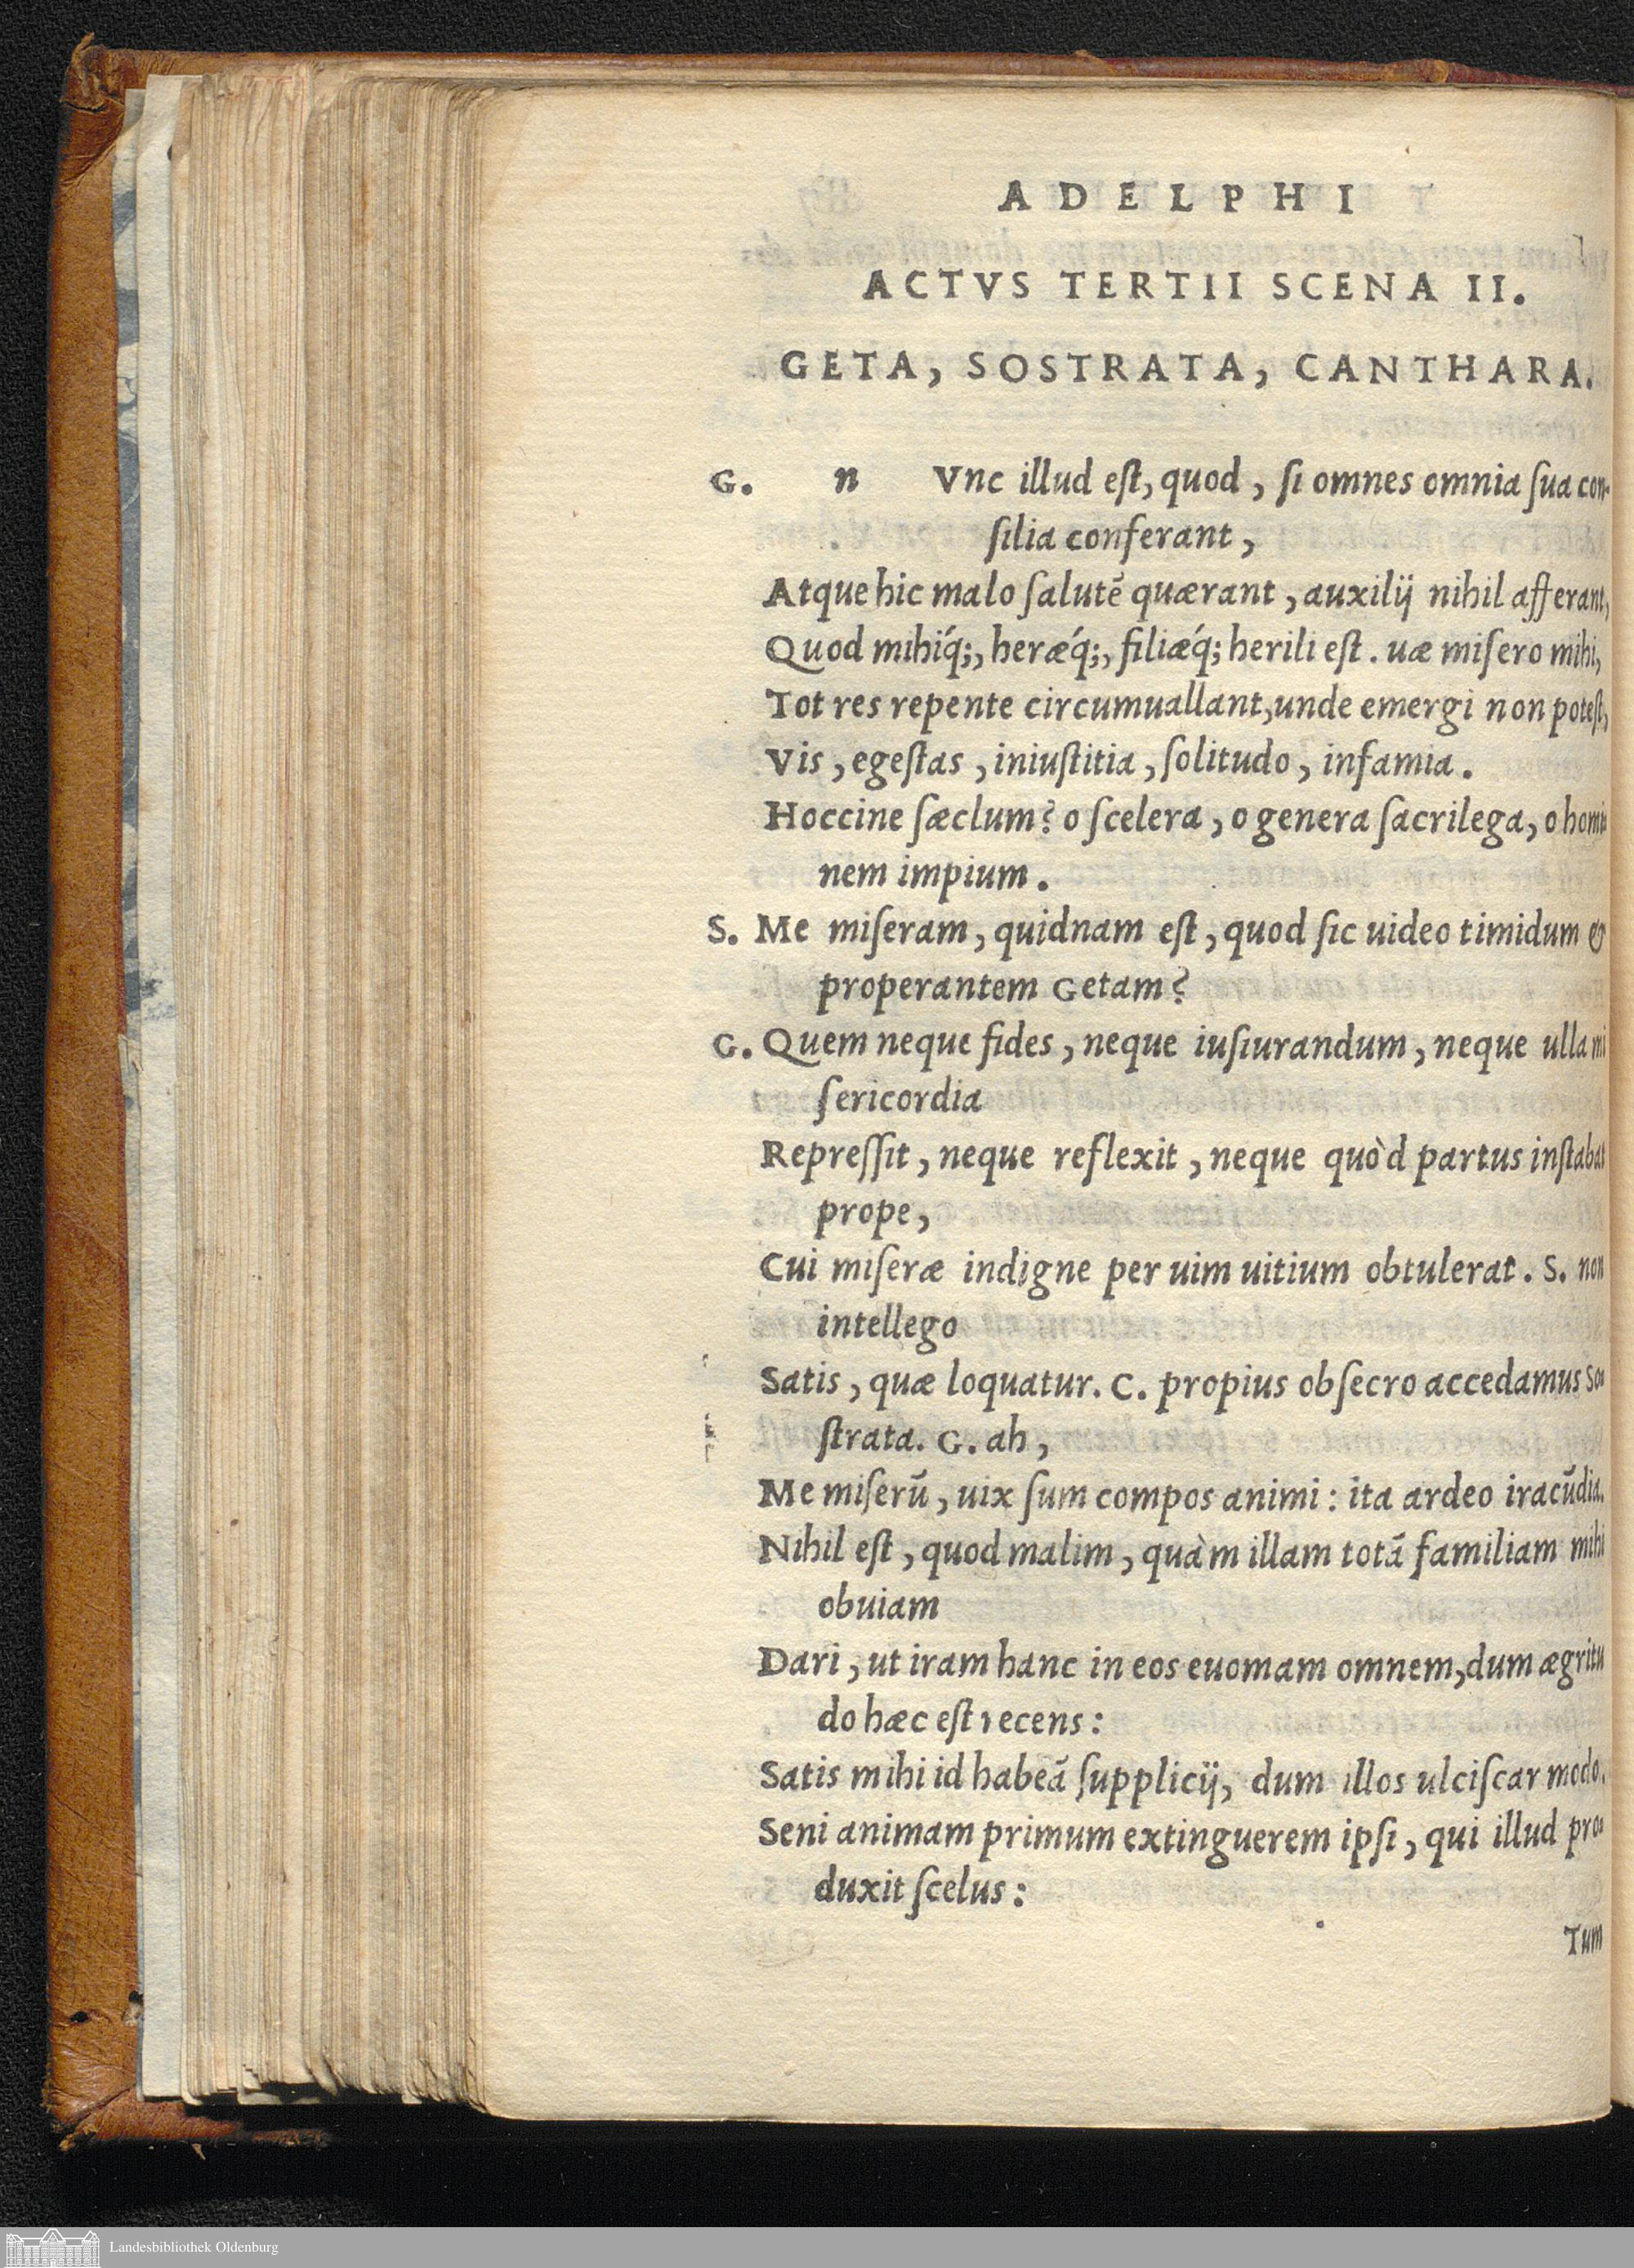 ADELPHI
ACTVS TERTII SCENA II.
GETA, SOSTRATA, CANTHARA.
G. n Vnc illud eſt, quod, ſi omnes omnia ſua con-
ſilia conferant,
Atque hic malo ſalutē quærant, auxilij nihil afferant,
Quod mihiq́;, heræq́;, filiæq́; herili eſt. uæ miſero mihi,
Tot res repente circumuallant, unde emergi non poteſt,
Vis, egeſtas, iniuſtitia, ſolitudo, infamia.
Hoccine ſæclum? o ſcelera, o genera ſacrilega, o homi
nem impium.
S. Me miſeram, quidnam eſt, quod ſic uideo timidum &
properantem Getam?
G. Quem neque fides, neque iuſiurandum, neque ulla mi
ſericordia
Repreſſit, neque reflexit, neque quòd partus inſtabat
prope,
Cui miſeræ indigne per uim uitium obtulerat. S. non
intellego
Satis, quæ loquatur. C. propius obſecro accedamus So-
ſtrata. G. ah,
Me miſerū, uix ſum compos animi: ita ardeo iracūdia.
Nihil eſt, quod malim, quàm illam totā familiam mihi
obuiam
Dari, ut iram hanc in eos euomam omnem, dum ægritu
do hæc eſt recens:
Satis mihi id habeā ſupplicij, dum illos ulciſcar modo.
Seni animam primum extinguerem ipſi, qui illud pro-
duxit ſcelus:
Tum
Landesbibliothek Oldenburg